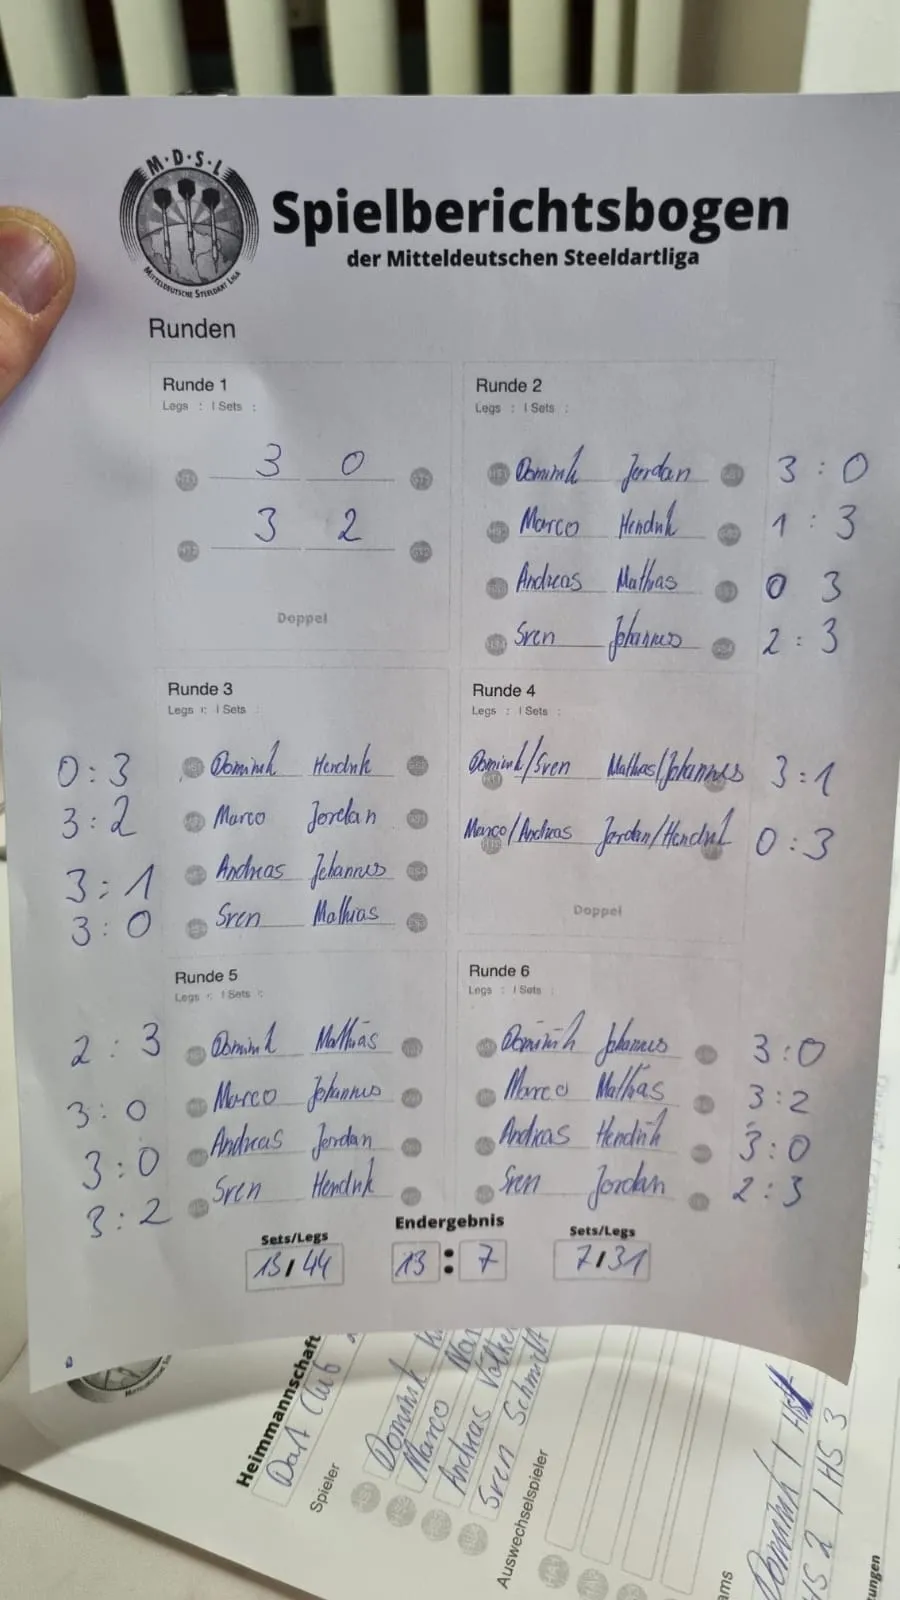 M·D·S·L
MITTELDEUTSCHE STEELDART LIGA
Spielberichtsbogen
der Mitteldeutschen Steeldartliga
Runden
Runde 1
Legs : | Sets :
3 0
3 2
Doppel
Runde 2
Legs : | Sets :
Dominik Jordan 3 : 0
Marco Hendrik 1 : 3
Andreas Mathias 0 3
Sven Johannes 2 : 3
Runde 3
Legs : | Sets :
0 : 3 Dominik Hendrik
3 : 2 Marco Jordan
3 : 1 Andreas Johannes
3 : 0 Sven Mathias
Runde 4
Legs : | Sets :
Dominik/Sven Mathias/Johannes 3 : 1
Marco/Andreas Jordan/Hendrik 0 : 3
Doppel
Runde 5
Legs : | Sets :
2 : 3 Dominik Mathias
3 : 0 Marco Johannes
3 : 0 Andreas Jordan
3 : 2 Sven Hendrik
Runde 6
Legs : | Sets :
Dominik Johannes 3 : 0
Marco Mathias 3 : 2
Andreas Hendrik 3 : 0
Sven Jordan 2 : 3
Sets/Legs
13 / 44
Endergebnis
13 : 7
Sets/Legs
7 / 31
Heimmannschaft
Dart Club
Spieler
Dominik
Marco
Andreas
Sven Schmidt
Auswechselspieler
Dominik 1
HS 2 / HS 3